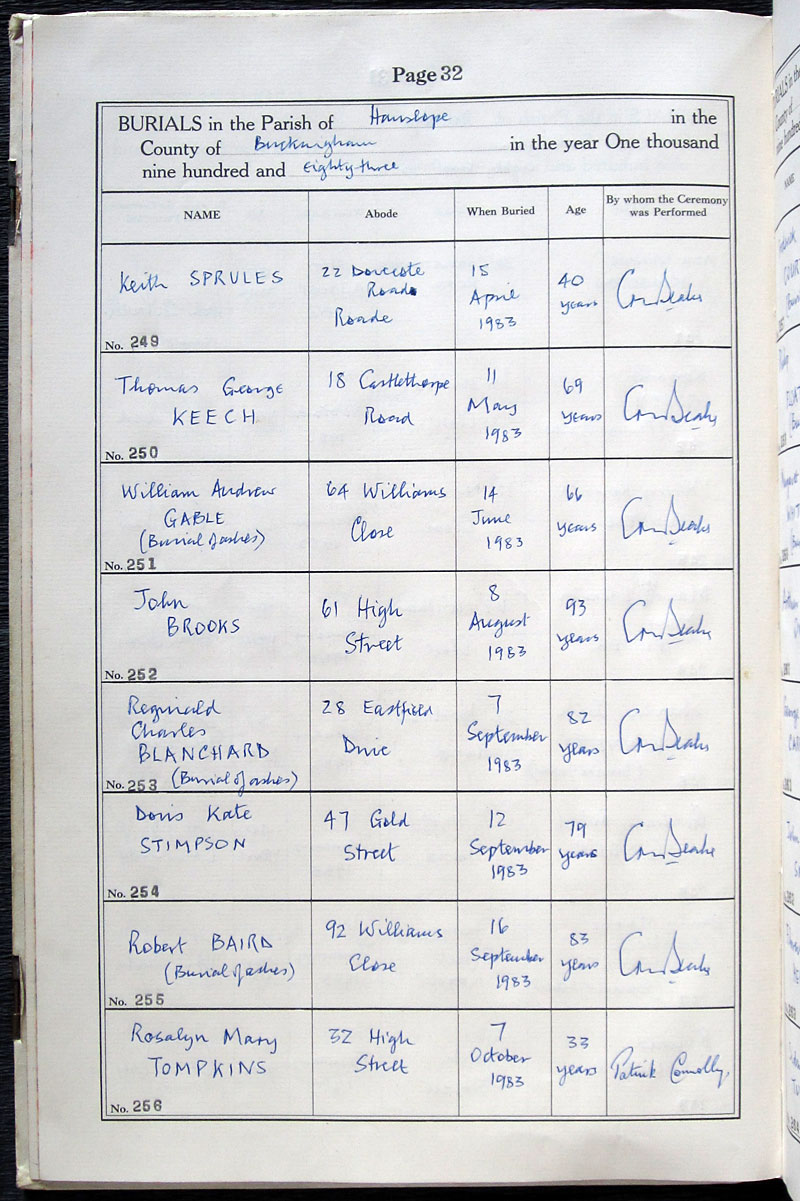 Page 32
BURIALS in the Parish of Hanslope in the
County of Buckingham in the year One thousand
nine hundred and Eighty-three
NAME
Abode
When Buried
Age
By whom the Ceremony
was Performed
Keith SPRULES
22
Road
Roade
15
April
1983
40
years
No. 249
Thomas George
KEECH
18 Castlethorpe
Road
11
May
1983
69
years
No. 250
William Andrew
GABLE
(Burial of ashes)
64 Williams
Close
14
June
1983
66
years
No. 251
John
BROOKS
61 High
Street
8
August
1983
93
years
No. 252
Reginald
Charles
BLANCHARD
(Burial of ashes)
28 Eastfield
Drive
7
September
1983
82
years
No. 253
Doris Kate
STIMPSON
47 Gold
Street
12
September
1983
79
years
No. 254
Robert BAIRD
(Burial of ashes)
92 Williams
Close
16
September
1983
83
years
No. 255
Rosalyn Mary
TOMPKINS
32 High
Street
7
October
1983
33
years
Patrick Connolly
No. 256